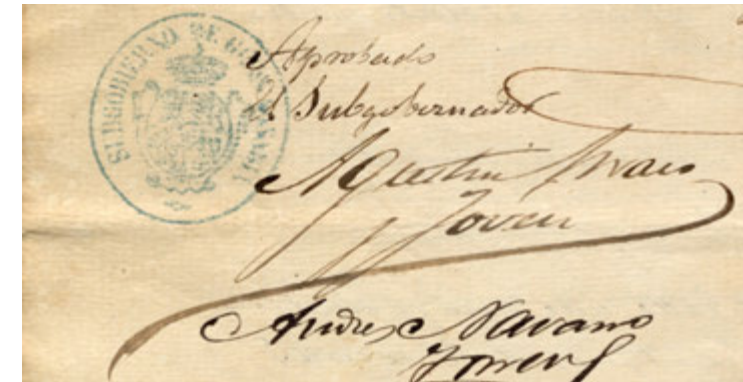 SUBGOBIERNO DE GRAN CANARIA
Aprobado
el Subgobernador
Agustin Bravo
Joven
Andres Navarro
Torrens